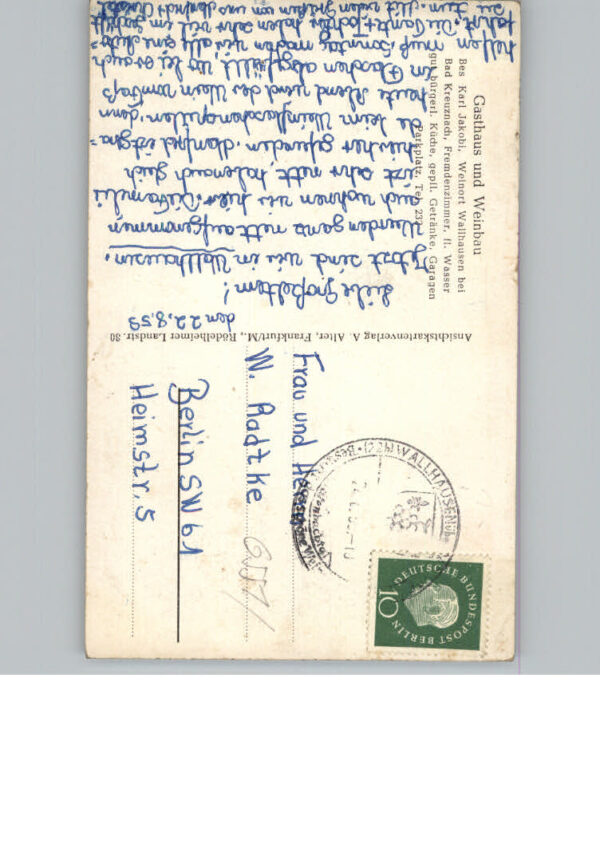 Gasthaus und Weinbau
Bes. Karl Jakobi, Weinort Wallhausen bei
Bad Kreuznach, Fremdenzimmer, fl. Wasser
gut bürgerl. Küche, gepfl. Getränke, Garagen
Parkplatz, Tel. 237
Ansichtskartenverlag A. Alter, Frankfurt/M., Rödelheimer Landstr. 30
den 22.8.59
Liebe Großeltern!
Jetzt sind wir in Wallhausen.
Wurden ganz nett aufgenommen
auch wohnen wir hier. Die Familie
ist sehr nett, haben auch gleich
die beim Weinflaschenspülen, denn
heute Abend wird der Wein vom Faß
in Flaschen abgefüllt, wo bei er auch
helfen muß. Sonntag machen wir alle eine Auto=
fahrt. Die haben sehr viel
Frau und Herrn
W. Radtke
Berlin SW 61
Heimstr. 5
WALLHAUSEN
DEUTSCHE BUNDESPOST BERLIN
10